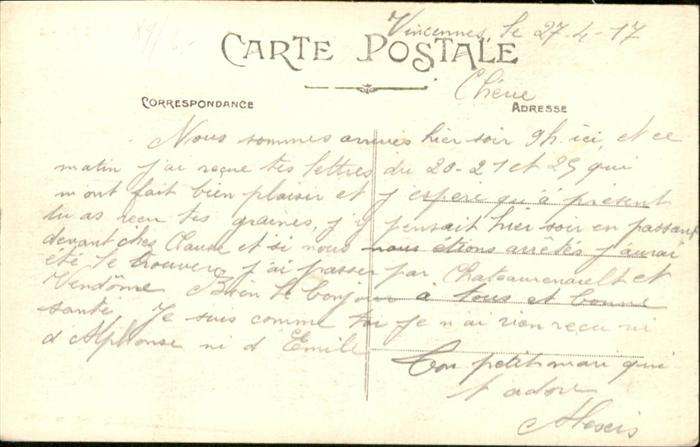 Vincennes, le 27-4-17
CARTE POSTALE
Chérie
CORRESPONDANCE
ADRESSE
Nous sommes arrivés hier soir 9h. ici, et ce
matin j'ai reçue tes lettres du 20-21 et 25 qui
m'ont fait bien plaisir et j'espère qu'à présent
tu as reçu tes graines, j'y pensait hier soir en passant
devant chez Claude et si nous nous étions arrêtés j'aurai
été le trouver, j'ai passer par Chateaurenault et
Vendôme Bien le bonjour à tous et bonne
santé. Je suis comme toi je n'ai rien reçu ni
d Alphonse ni d Emile
Ton petit mari qui
t'adore
Alexis